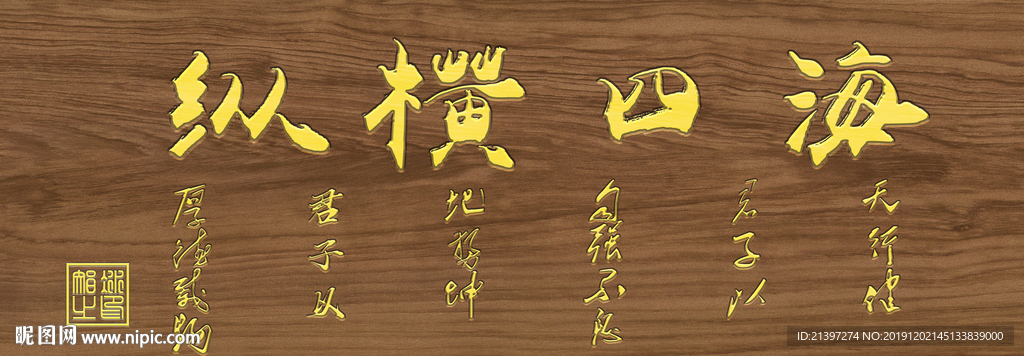 纵横四海
天行健
君子以
自强不息
地势坤
君子以
厚德载物
昵图网 www.nipic.com
ID:21397274 NO:20191202145133839000